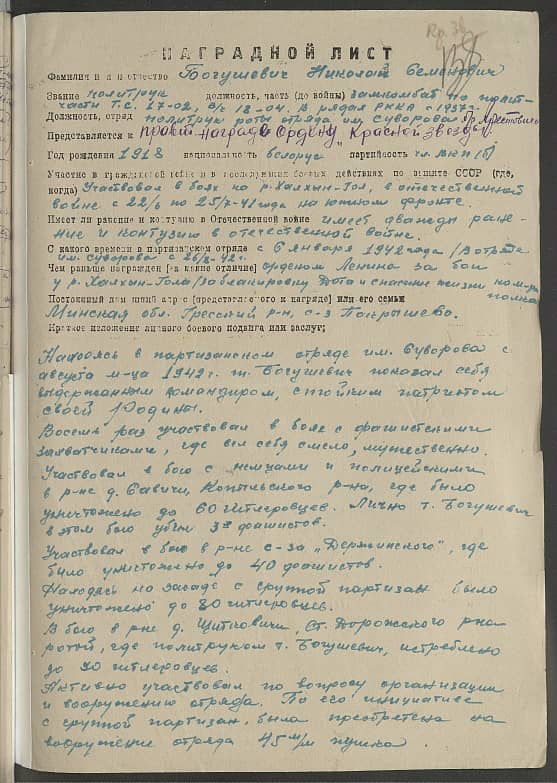 Кр. Зв.
НАГРАДНОЙ ЛИСТ
Фамилия имя отчество Богушевич Николай Семенович
Звание политрук должность, часть (до войны) замкомбат по полит-
части Т.С. 27-02. в/ч 18-04. В рядах РККА с 1937 г.
Должность, отряд политрук роты отряда им. Суворова
Представляется к правит. награде Ордену „Красной Звезды"
Год рождения 1918 национальность белорус партийность чл. ВКП(б)
Участие в гражданской войне и в последующих боевых действиях по защите СССР (где,
когда) Участвовал в боях на р. Халхын-Гол, в отечественной
войне с 22/6 по 25/7-41 года на южном фронте.
Имеет ли ранение и контузию в Отечественной войне имеет дважды ране-
ние и контузию в отечественной войне.
С какого времени в партизанском отряде с 6 января 1942 года /В отряде
им. Суворова с 26/8-42 г.
Чем раньше награжден [за какие отличия] орденом Ленина за бои
у р. Халхын-Гола/за блакировку Дота и спасение жизни ком-ра
полка
Постоянный домашний адрес [представленного к награде] или его семьи
Минская обл. Гресский р-н, с-з Покрышево.
Краткое изложение личного боевого подвига или заслуг;
Находясь в партизанском отряде им. Суворова с
августа м-ца 1942 г. т. Богушевич показал себя
выдержанным командиром, стойким патриотом
своей Родины.
Восемь раз участвовал в боях с фашистскими
захватчиками, где вел себя смело, мужественно.
Участвовал в бою с немцами и полицейскими
в р-не д. Савичи, Копыльского р-на, где было
уничтожено до 60 гитлеровцев. Лично т. Богушевич
в этом бою убил 3х фашистов.
Участвовал в бою в р-не с-за „Держинского", где
было уничтожено до 40 фашистов.
Находясь на засаде с группой партизан было
уничтожено до 80 гитлеровцев.
В бою в р-не д. Щитковичи, Ст. Дорожского р-на
ротой, где политруком т. Богушевич, истреблено
до 90 гитлеровцев.
Активно участвовал по вопросу организации
и вооружению отряда. По его инициативе
с группой партизан была преобретена на
вооружение отряда 45 м/м пушка.